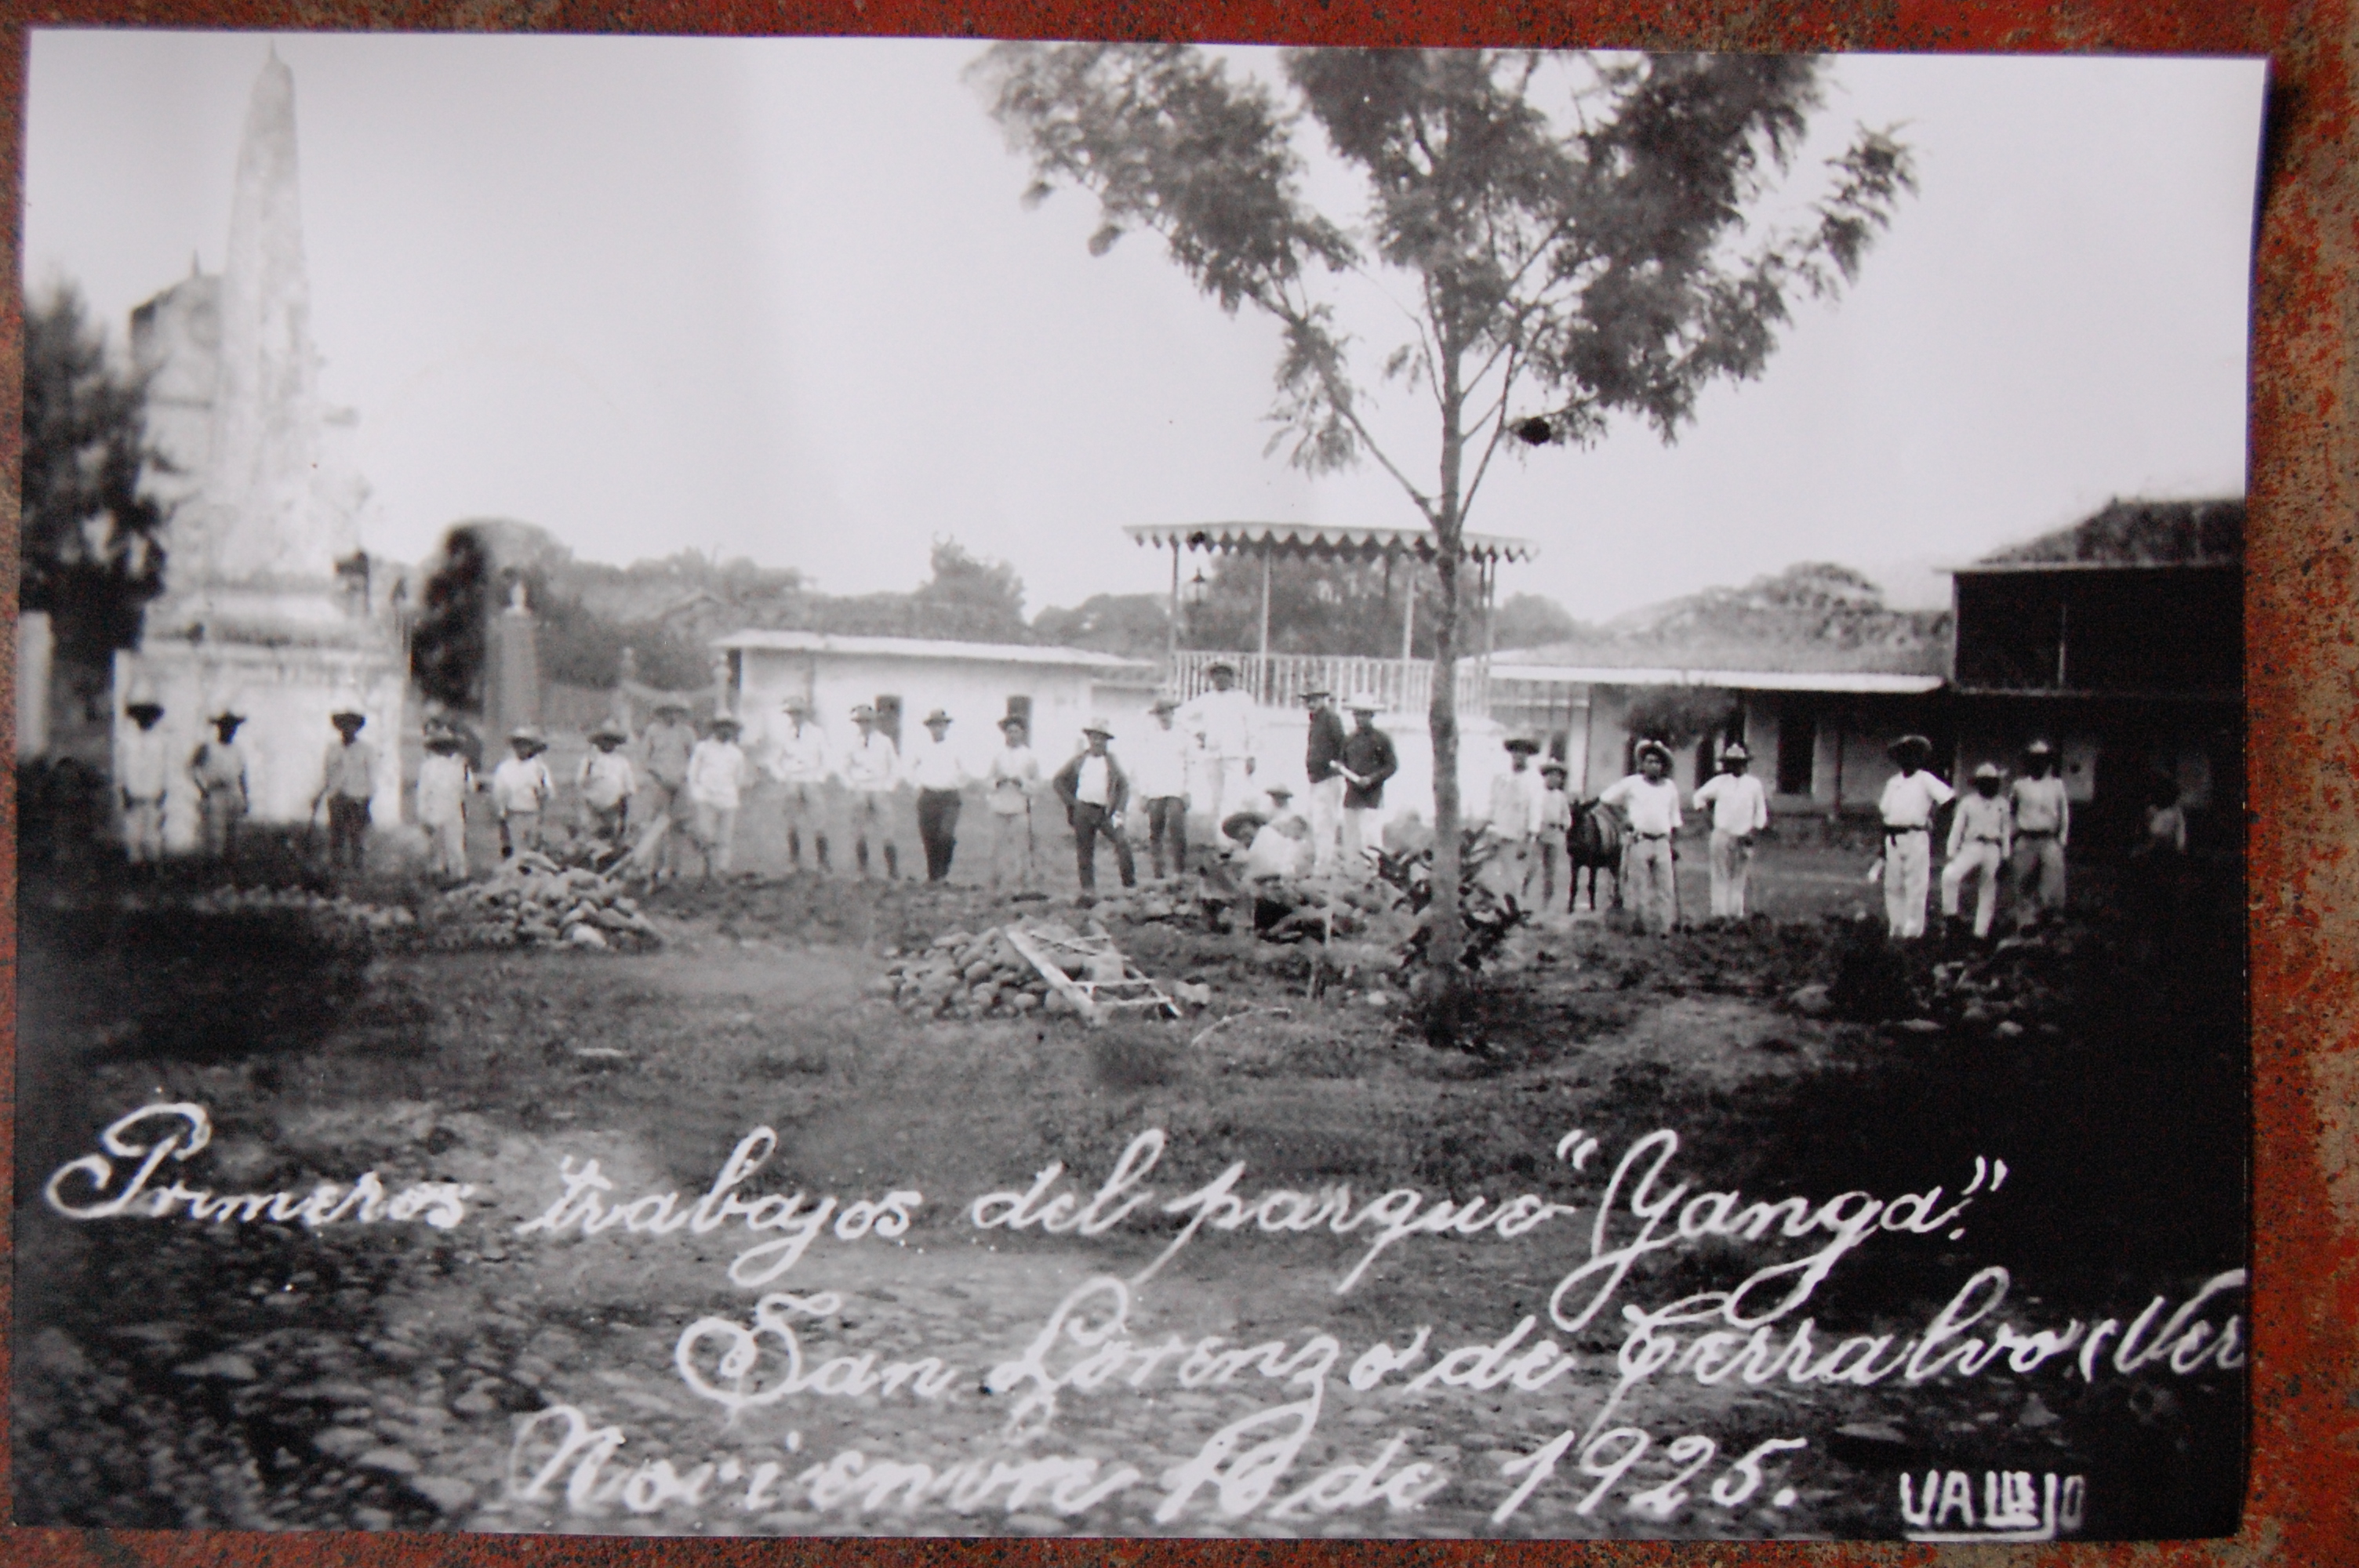 Primeros trabajos del parque "Yanga".
San Lorenzo de Cerralvo (Ver
Noviembre de 1925.
VALLEJO